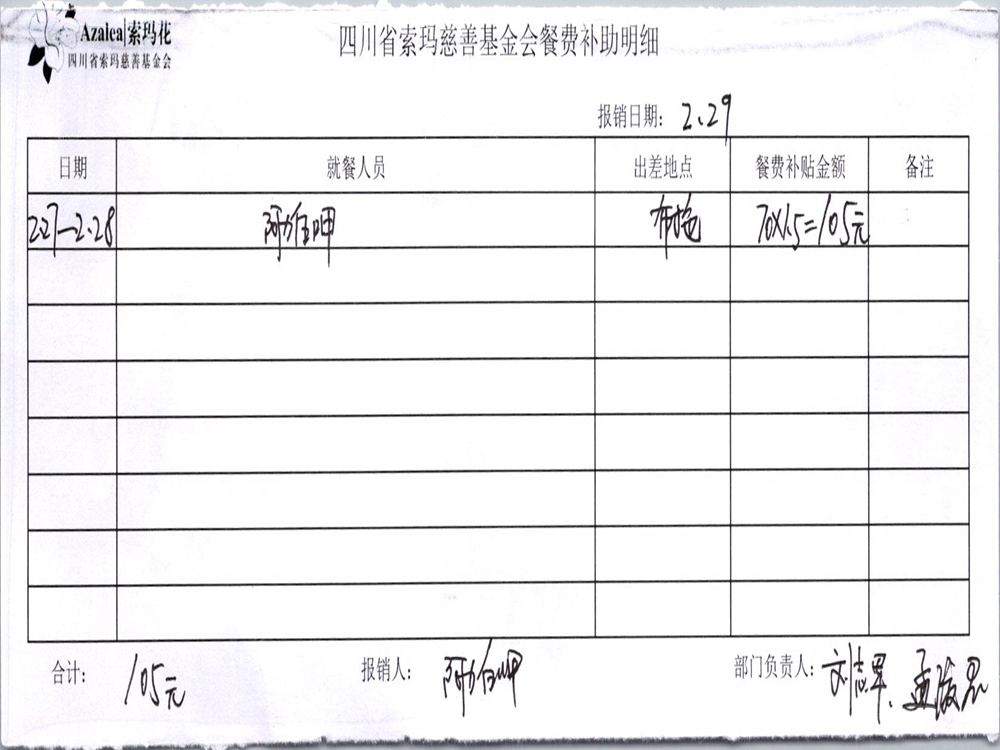 Azalea|索玛花
四川省索玛慈善基金会
四川省索玛慈善基金会餐费补助明细
报销日期: 2.29
日期 就餐人员 出差地点 餐费补贴金额 备注
2.27—2.28 布拖 70×1.5=105元
合计: 105元 报销人: 部门负责人: 刘志军、孟